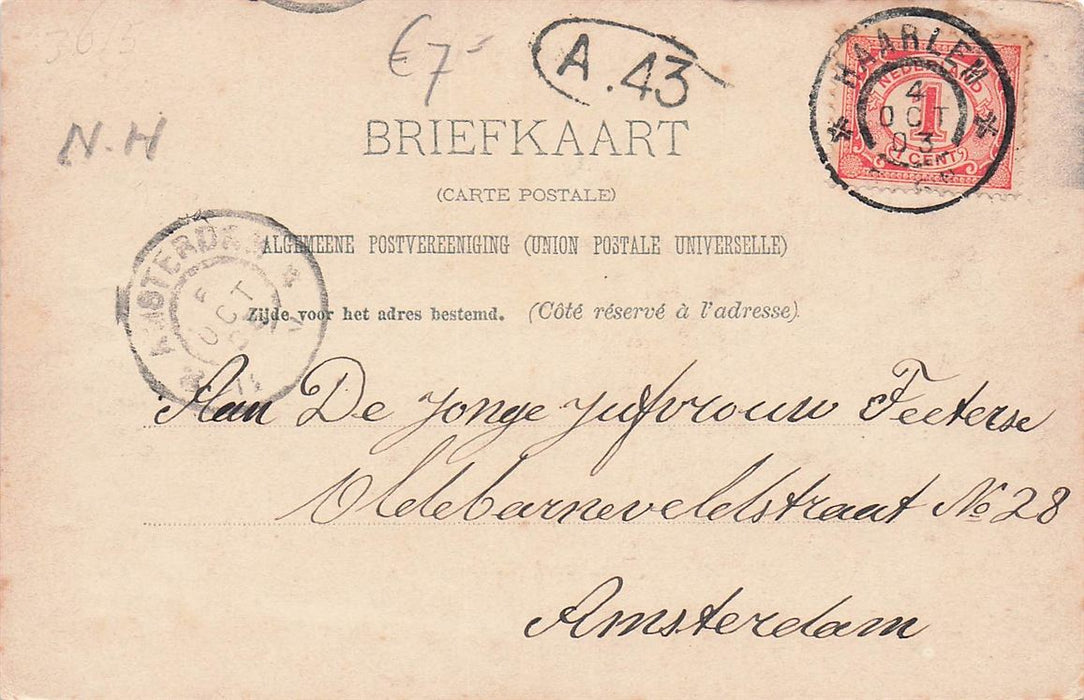 €7-
A.43
HAARLEM
4
OCT
03
NEDERLAND
1
1 CENT
N.H
BRIEFKAART
(CARTE POSTALE)
ALGEMEENE POSTVEREENIGING (UNION POSTALE UNIVERSELLE)
AMSTERDAM
OCT
Zijde voor het adres bestemd. (Côté réservé à l'adresse)
Aan De Jonge jufvrouw Feeterse
Oldebarneveldstraat No 28
Amsterdam